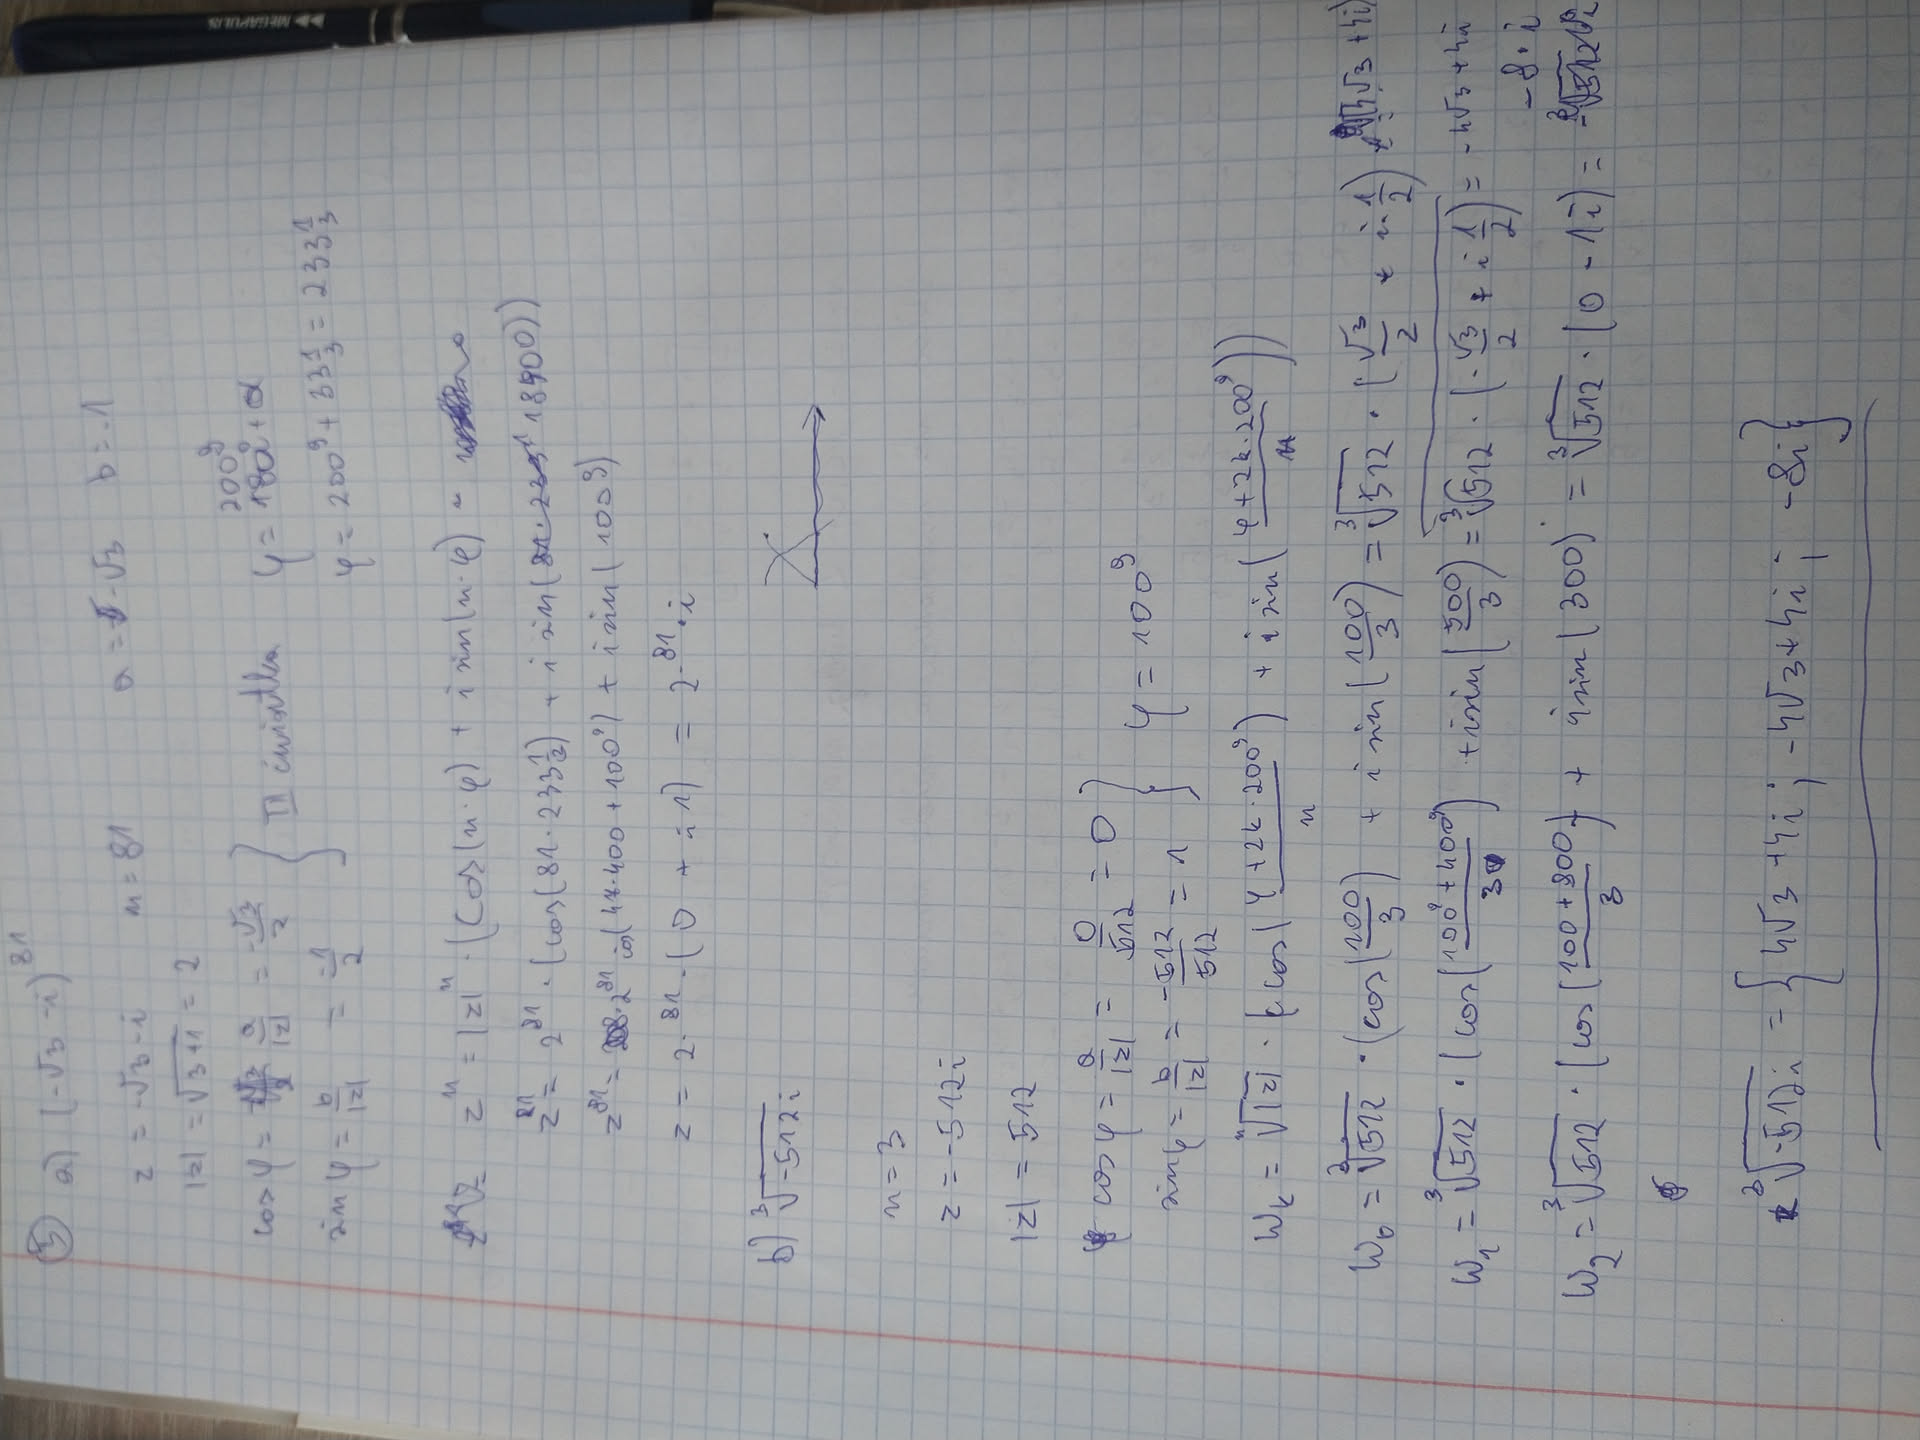 MEGAPOLIS
③ a) (-√3 - i)^81
z = -√3 - i n = 81 a = -√3 b = -1
|z| = √3+1 = 2
cos φ = a/|z| = -√3/2 } III ćwiartka φ = 200^g + α
sin φ = b/|z| = -1/2 φ = 200^g + 33 1/3 = 233 1/3
z^n = |z|^n · (cos(n·φ) + i sin(n·φ) =
z^81 = 2^81 · (cos(81·233 1/3) + i sin(18900))
z^81 = 2^81 + 100^g) + i sin(100^g)
z = 2·^81 · (0 + i·1) = 2·^81·i
b) ³√-512i
n = 3
z = -512i
|z| = 512
cos φ = a/|z| = 0/512 = 0 } φ = 100^g
sin φ = b/|z| = -512/512 = 1
W_k = ⁿ√|z| · (cos(φ+2k·200^g/n) + i sin(φ+2k·200^g/n))
W_0 = ³√512 · (cos(100/3) + i sin(100/3) = ³√512 · (√3/2 + i·1/2) 4√3 + 4i)
W_1 = ³√512 · (cos(100^g+400^g/3) + i sin(500/3) = ³√512 · (-√3/2 + i 1/2) = -4√3+4i
W_2 = ³√512 · (cos(100+800/3) + i sin(300) = ³√512 · (0 - 1i) = -8·i
³√-512i = {4√3+4i ; -4√3+4i ; -8i}